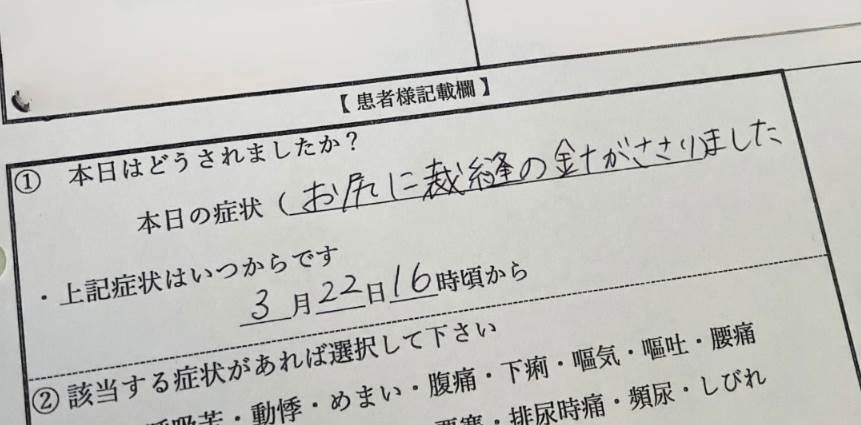 【患者様記載欄】
① 本日はどうされましたか？
本日の症状（お尻に裁縫の針がささりました
・上記症状はいつからです
3月22日16時頃から
② 該当する症状があれば選択して下さい
・動悸・めまい・腹痛・下痢・嘔気・嘔吐・腰痛
・排尿時痛・頻尿・しびれ